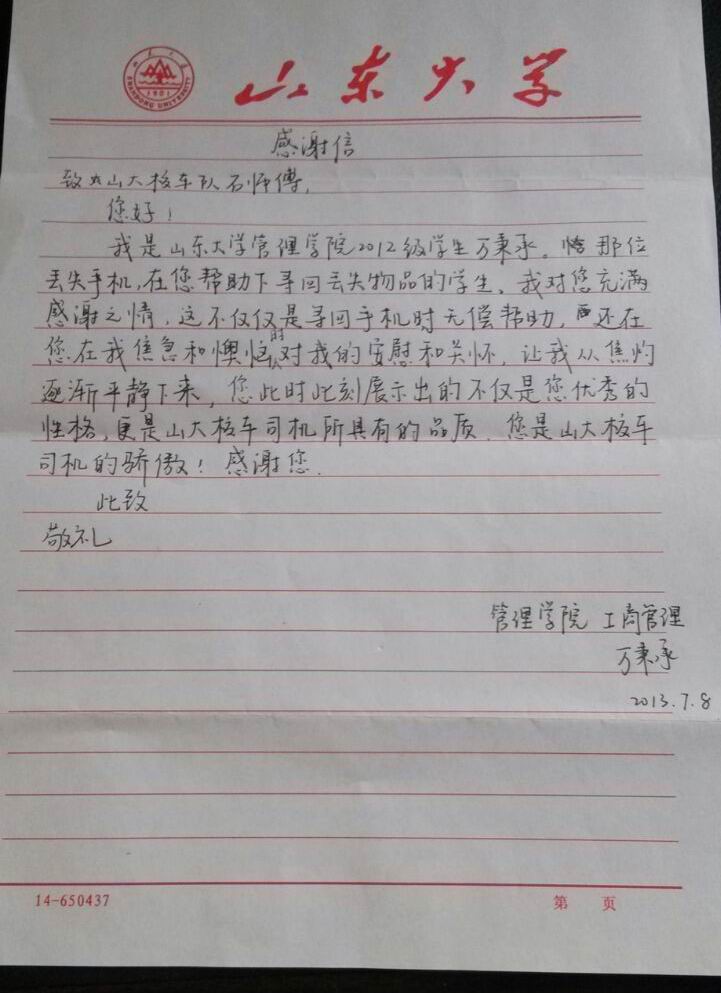 山东大学
SHANDONG UNIVERSITY
1901
感谢信
致山大校车队石师傅,
您好!
我是山东大学管理学院2012级学生万秉承。恰那位
丢失手机,在您帮助下寻回丢失物品的学生、我对您充满
感谢之情,这不仅仅是寻回手机时无偿帮助,还在
您在我焦急和懊恼时对我的安慰和关怀,让我从焦灼
逐渐平静下来,您此时此刻展示出的不仅是您优秀的
性格,更是山大校车司机所具有的品质、您是山大校车
司机的骄傲!感谢您.
此致
敬礼
管理学院 工商管理
万秉承
2013.7.8
14-650437 第 页